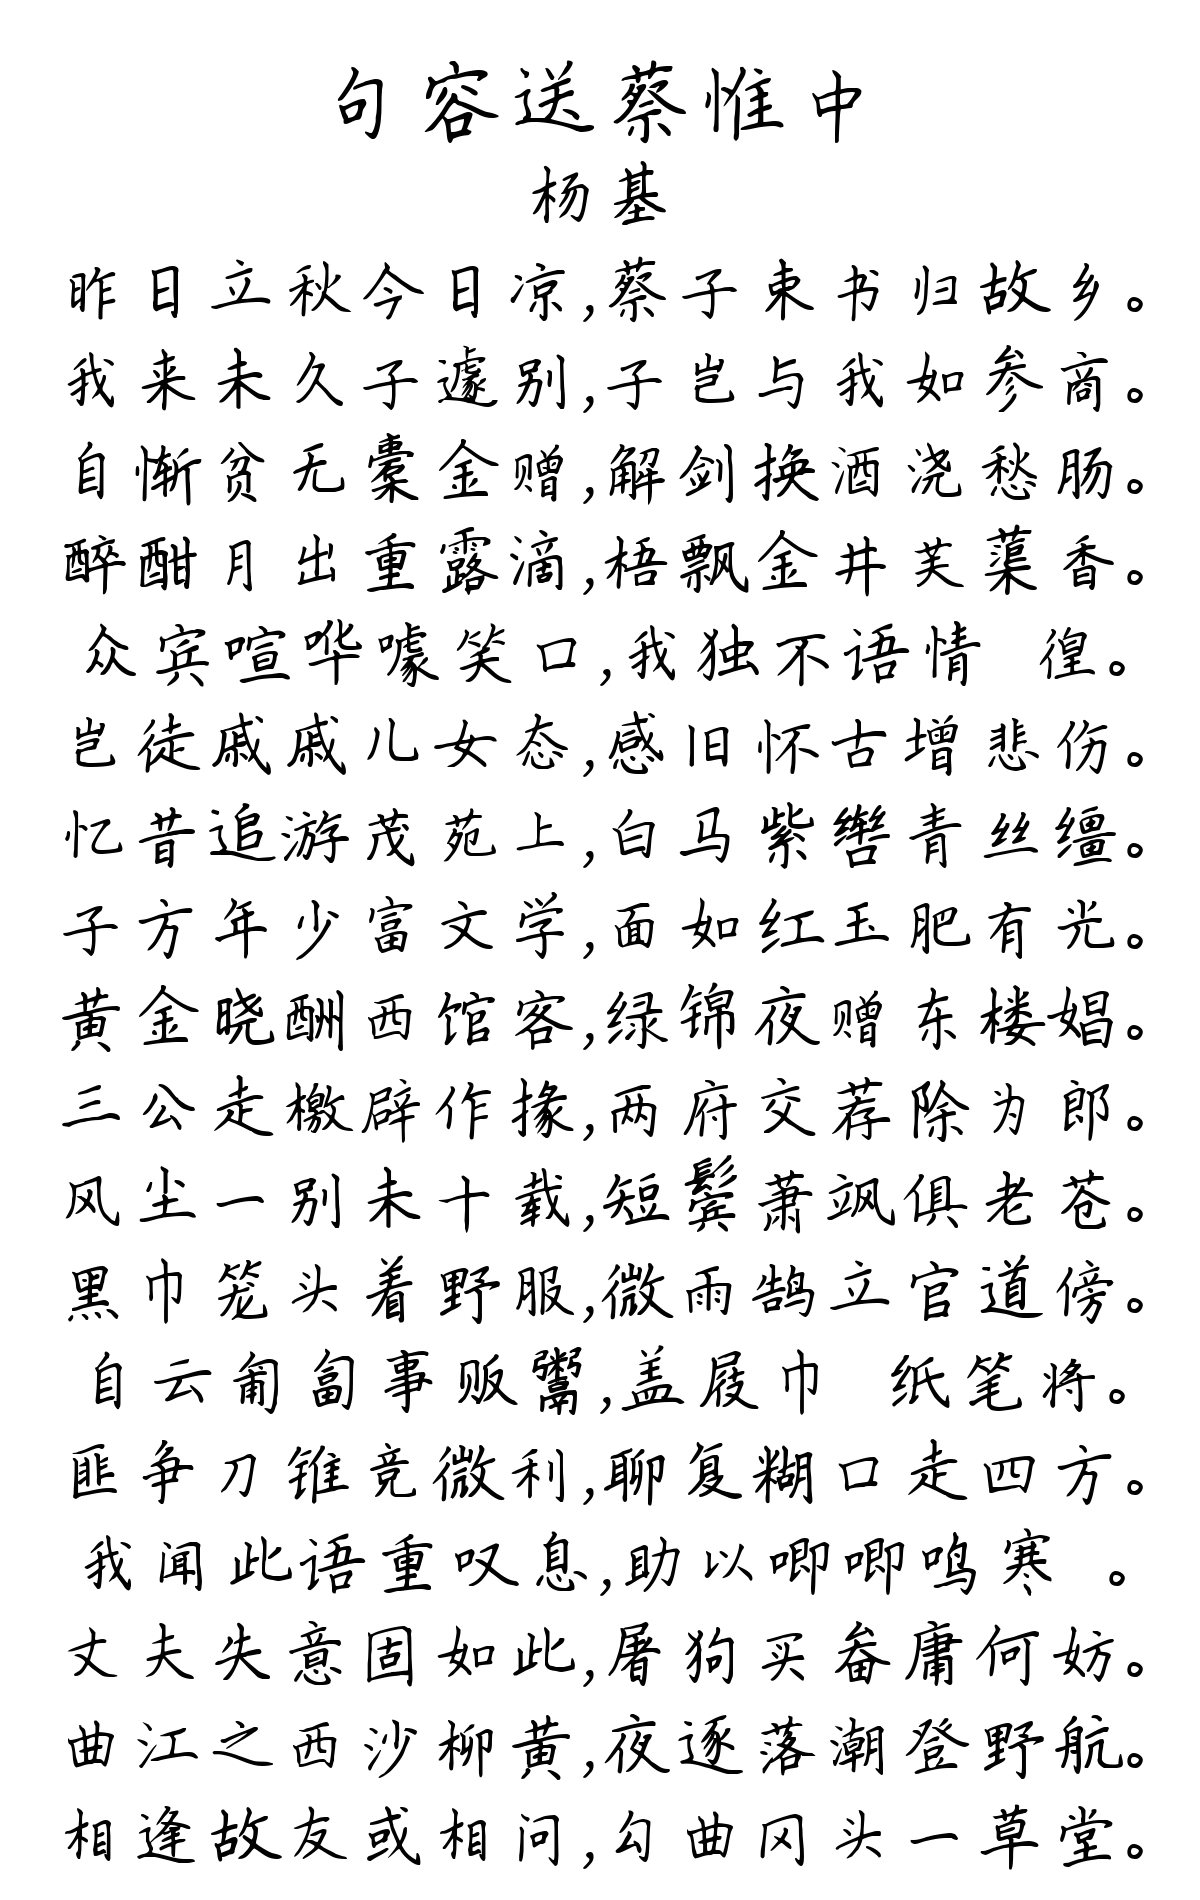 句容送蔡惟中
杨基
昨日立秋今日凉,蔡子束书归故乡。
我来未久子遽别,子岂与我如参商。
自惭贫无橐金赠,解剑换酒浇愁肠。
醉酣月出重露滴,梧飘金井芙蕖香。
众宾喧哗噱笑口,我独不语情 徨。
岂徒戚戚儿女态,感旧怀古增悲伤。
忆昔追游茂苑上,白马紫辔青丝缰。
子方年少富文学,面如红玉肥有光。
黄金晓酬西馆客,绿锦夜赠东楼娼。
三公走檄辟作掾,两府交荐除为郎。
风尘一别未十载,短鬓萧飒俱老苍。
黑巾笼头着野服,微雨鹄立官道傍。
自云匍匐事贩鬻,盖屐巾 纸笔将。
匪争刀锥竞微利,聊复糊口走四方。
我闻此语重叹息,助以唧唧鸣寒 。
丈夫失意固如此,屠狗买畚庸何妨。
曲江之西沙柳黄,夜逐落潮登野航。
相逢故友或相问,勾曲冈头一草堂。